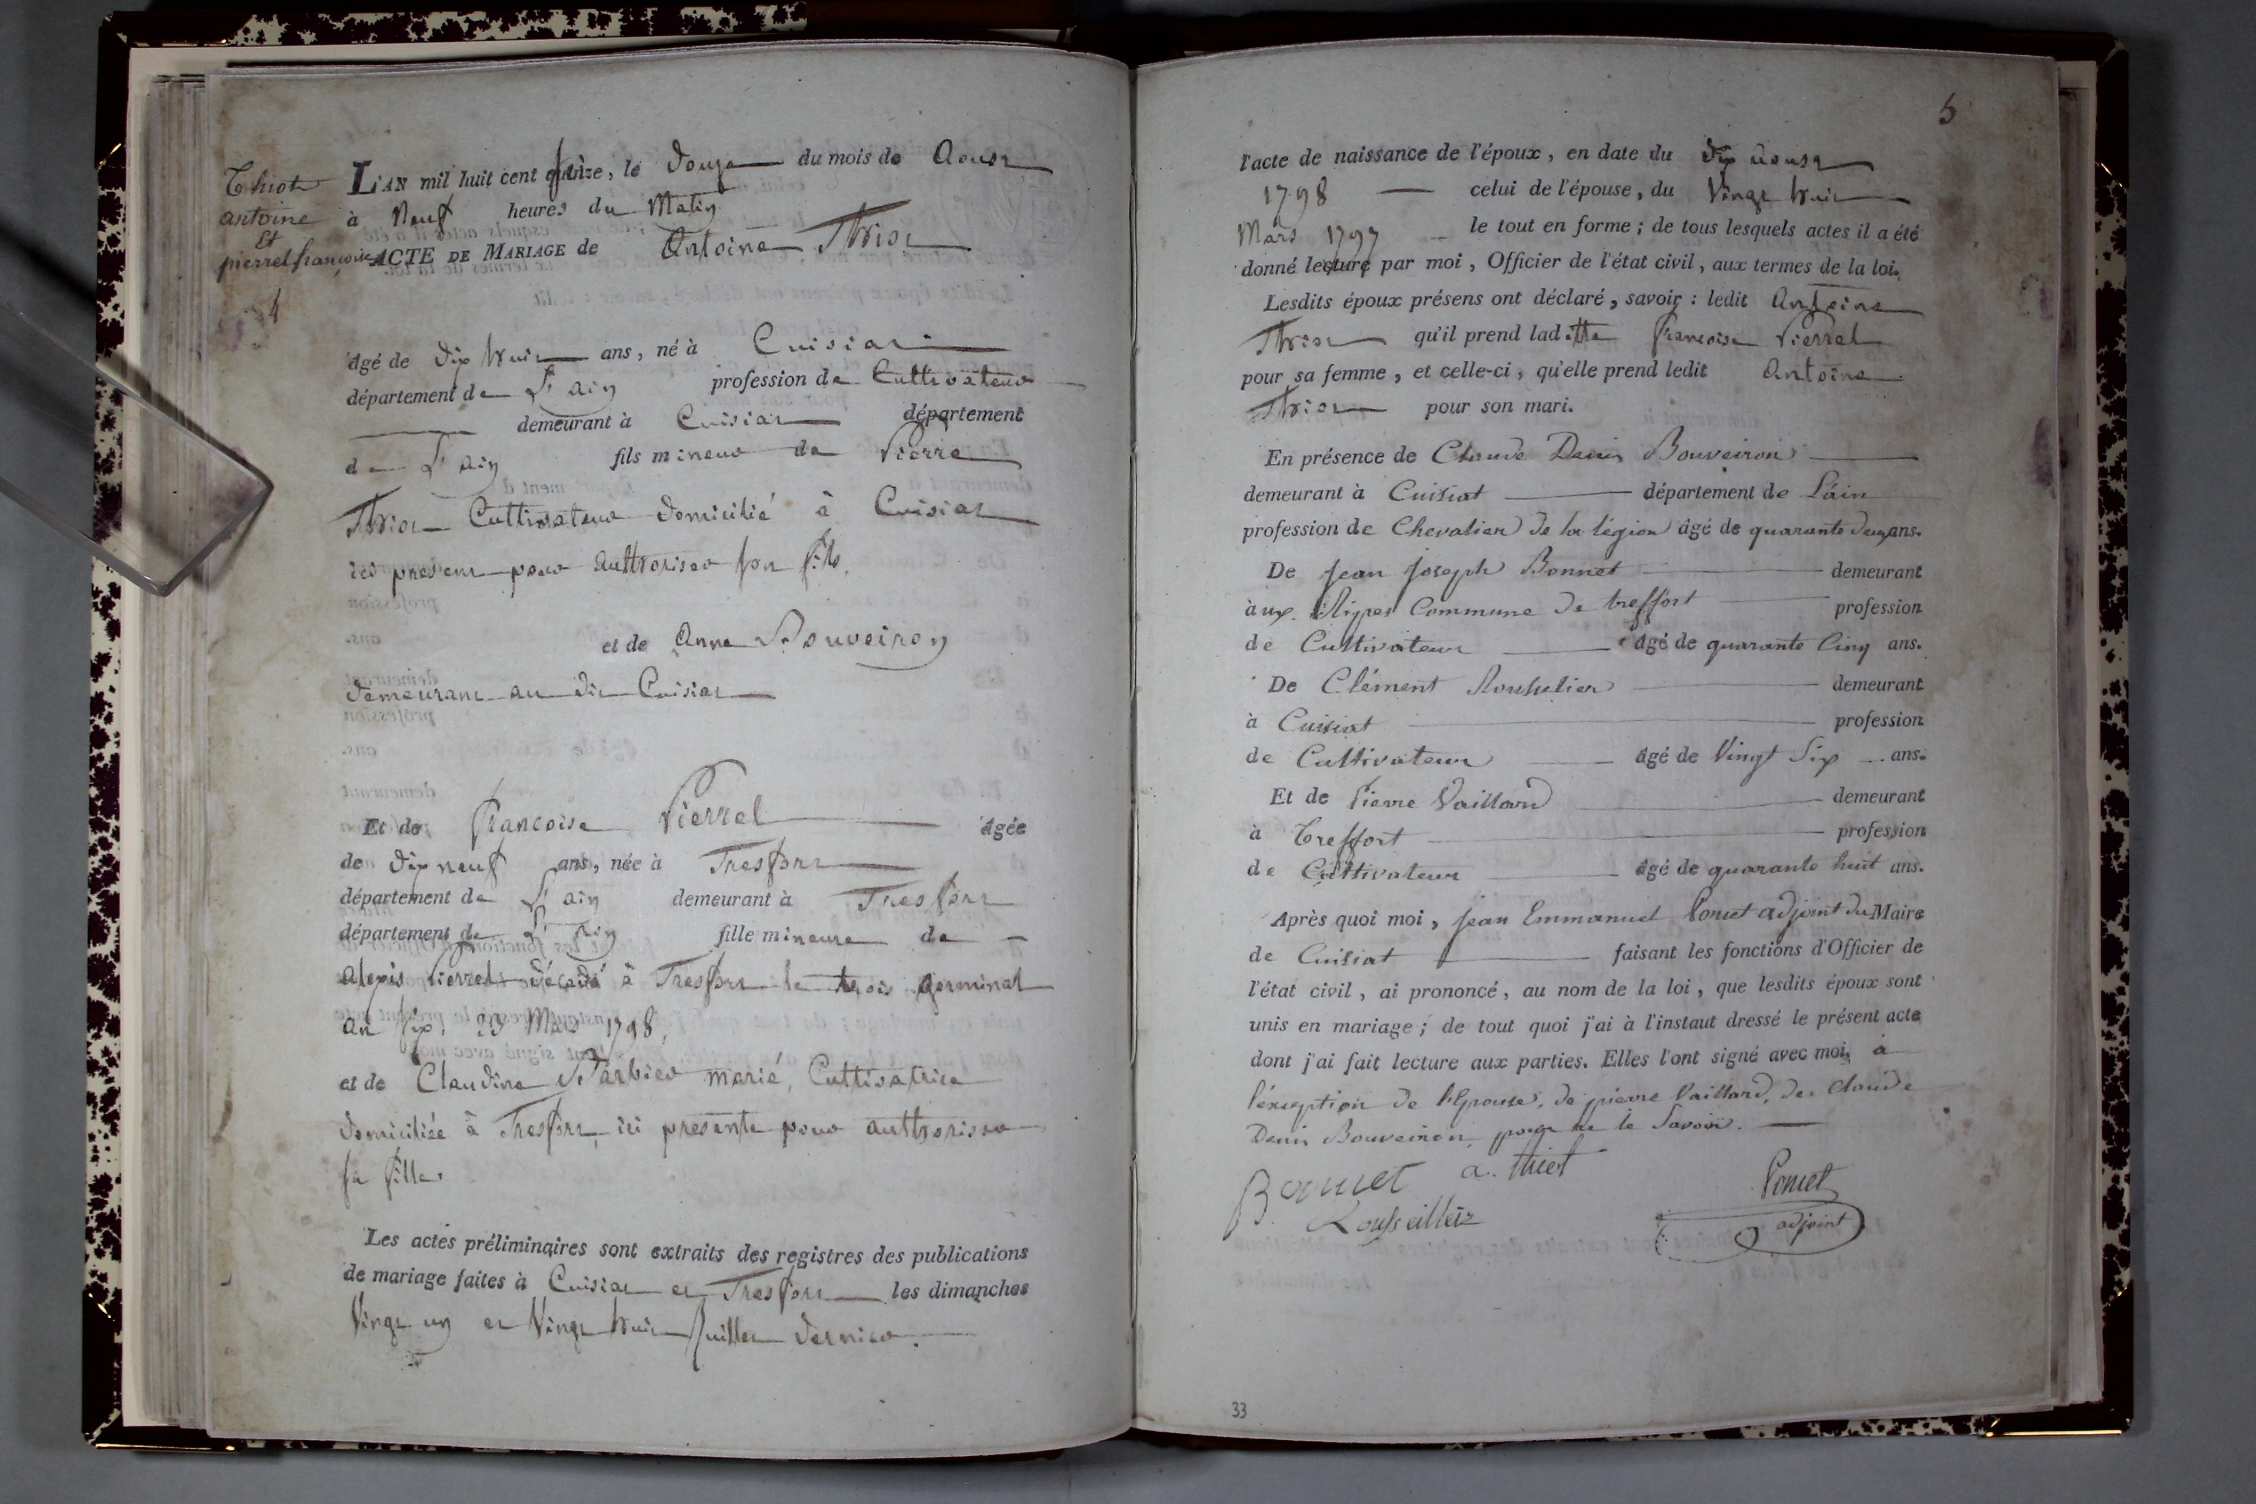 Thiot
antoine
Et
pierrel françoise
4
L'AN mil huit cent seize, le Douze du mois de Aoust
à Neuf heures du Matin
ACTE DE MARIAGE de Antoine Thiot
âgé de dix huit ans, né à Cuisiat
département de L'ain profession de Cultivateur
demeurant à Cuisiat département
de L'ain fils mineur de Pierre
Thiot Cultivateur domicilié à Cuisiat
ici présent pour authoriser son fils,
et de Anne Bouveiron
demeurant au dit Cuisiat
Et de françoise Pierrel âgée
de dix neuf ans, née à Tresfort
département de L'ain demeurant à Tresfort
département de L'ain fille mineure de
alexis Pierrel décédé à Tresfort le trois germinal
an six, 23 Mars 1798,
et de Claudine Barbier marié, Cultivatrice
domiciliée à Tresfort, ici présente pour authoriser
sa fille.
Les actes préliminaires sont extraits des registres des publications
de mariage faites à Cuisiat et Tresfort les dimanches
Vingt un et Vingt huit Juillet dernier.
5
l'acte de naissance de l'époux, en date du dix aoust
1798 celui de l'épouse, du Vingt huit
Mars 1797 le tout en forme ; de tous lesquels actes il a été
donné lecture par moi, Officier de l'état civil, aux termes de la loi.
Lesdits époux présens ont déclaré, savoir : ledit Antoine
Thiot qu'il prend laditte françoise Pierrel
pour sa femme, et celle-ci, qu'elle prend ledit Antoine
Thiot pour son mari.
En présence de Claude Denis Bouveiron
demeurant à Cuisiat département de L'ain
profession de Chevalier de la légion âgé de quarante deux ans.
De Jean Joseph Bonnet demeurant
aux Rippes Commune de treffort profession
de Cultivateur âgé de quarante Cinq ans.
De Clément demeurant
à Cuisiat profession
de Cultivateur âgé de Vingt Six ans.
Et de Pierre Vaillard demeurant
à Treffort profession
de Cultivateur âgé de quarante huit ans.
Après quoi moi, Jean Emmanuel Poncet adjoint du Maire
de Cuisiat faisant les fonctions d'Officier de
l'état civil, ai prononcé, au nom de la loi, que lesdits époux sont
unis en mariage ; de tout quoi j'ai à l'instaut dressé le présent acte
dont j'ai fait lecture aux parties. Elles l'ont signé avec moi, à
l'exception de l'Epouse, de pierre Vaillard, de Claude
Denis Bouveiron, pour ne le Savoir.
Bonnet a. thiot Poncet
adjoint
33